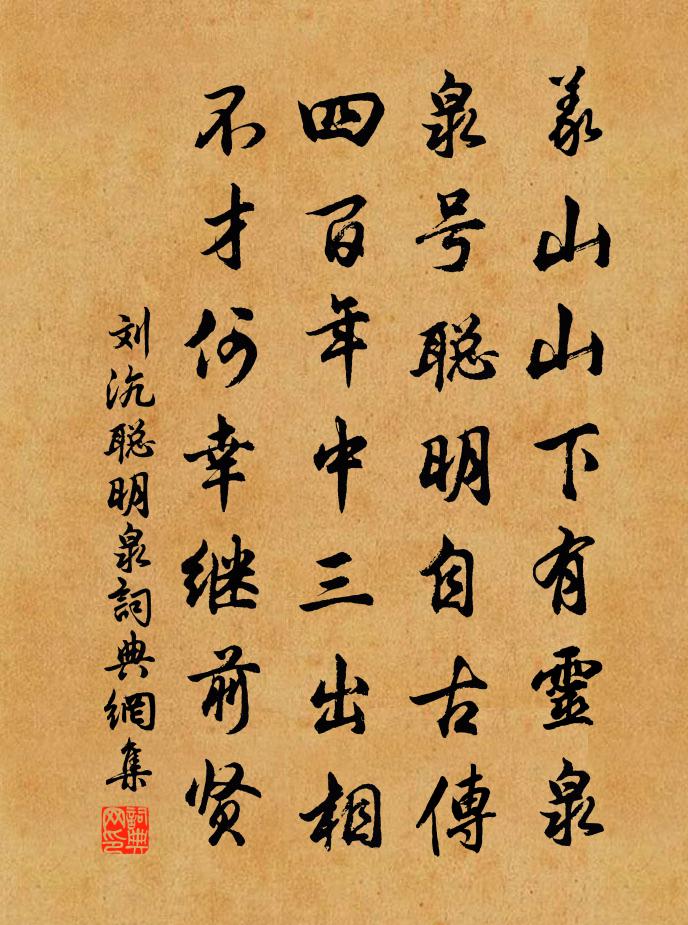 义山山下有靈泉
泉号聪明自古傳
四百年中三出相
不才何幸继前贤
刘沆聪明泉詞典網集
詞典网印